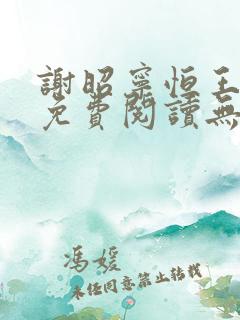 謝昭寧恒王
免費閱讀無
馮媛
未經同意禁止轉載